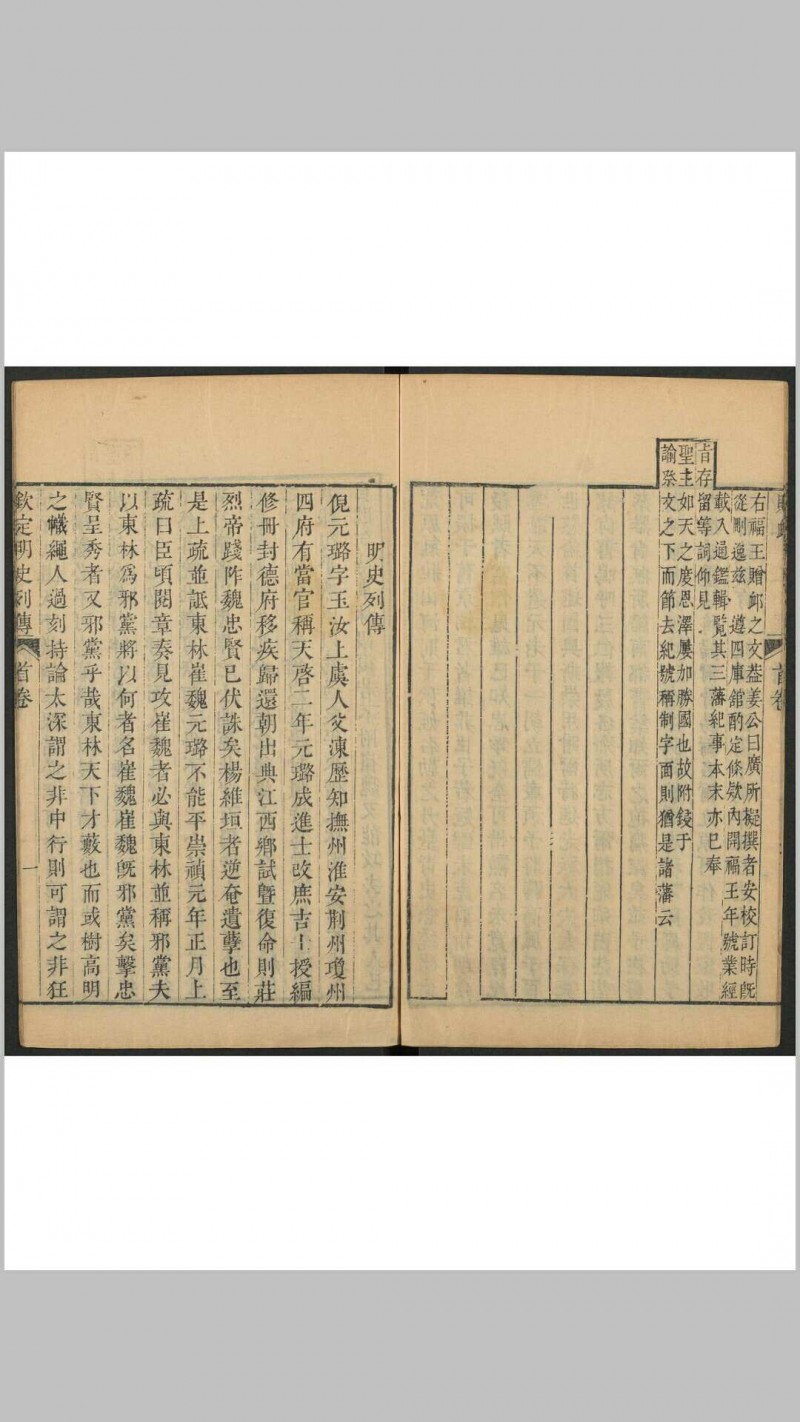 首卷
右福王贈卹之文葢姜公曰廣所擬撰者安校訂時旣
從刪遑兹　遵四庫舘酌定條欵內開福王年號業經
載入通鑑輯覧其三藩紀事本末亦巳奉
旨存留等詞仰見
聖主如天之慶恩澤屢加勝國也故附錢于
諭祭文之下而節去紀號稱制字面則猶是諸藩云
明史列傳
倪元璐字玉汝上虞人父涷歷知撫州淮安荆州瓊州
四府有當官稱天啓二年元璐成進士改庶吉士授編
修冊封德府移疾歸還朝出典江西鄉試曁復命則莊
烈帝踐阼魏忠賢巳伏誅矣楊維垣者逆奄遺孽也至
是上疏並詆東林崔魏元璐不能平崇禎元年正月上
疏曰臣頃閱章奏見攻崔魏者必與東林並稱邪黨夫
以東林爲邪黨將以何者名崔魏崔魏旣邪黨矣擊忠
賢呈秀者又邪黨乎哉東林天下才藪也而或樹高明
之幟繩人過刻持論太深謂之非中行則可謂之非狂
欽定明史列傳　首卷　一